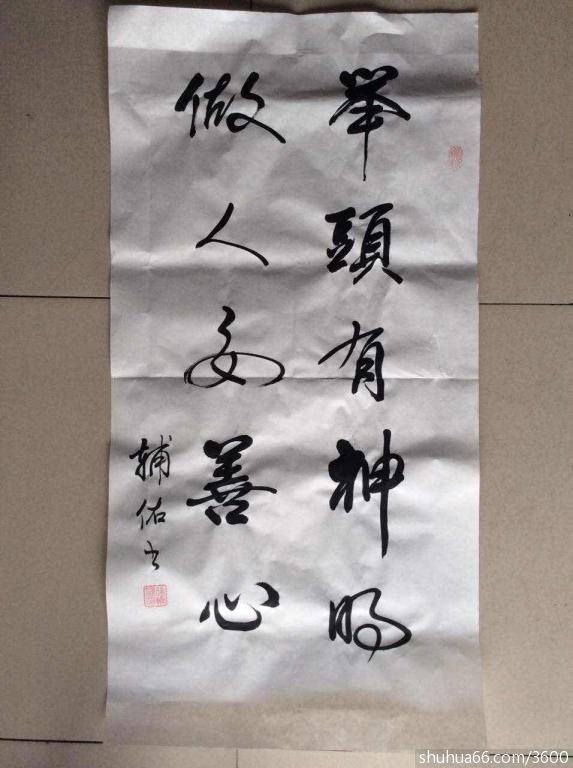 举頭有神明
做人要善心
辅佑书
shuhua66.com/3600